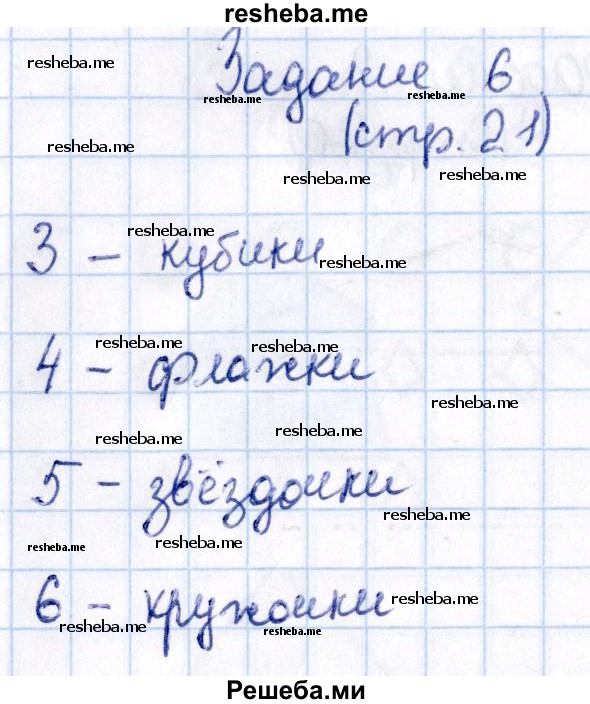 resheba.me
Задание 6
resheba.me
resheba.me resheba.me
(стр. 21)
resheba.me
resheba.me resheba.me
resheba.me
3 - кубики
resheba.me
resheba.me resheba.me
4 - флажки
resheba.me
resheba.me resheba.me
5 - звёздочки
resheba.me
resheba.me resheba.me
6 - кружочки
resheba.me
resheba.me resheba.me
Решеба.ми